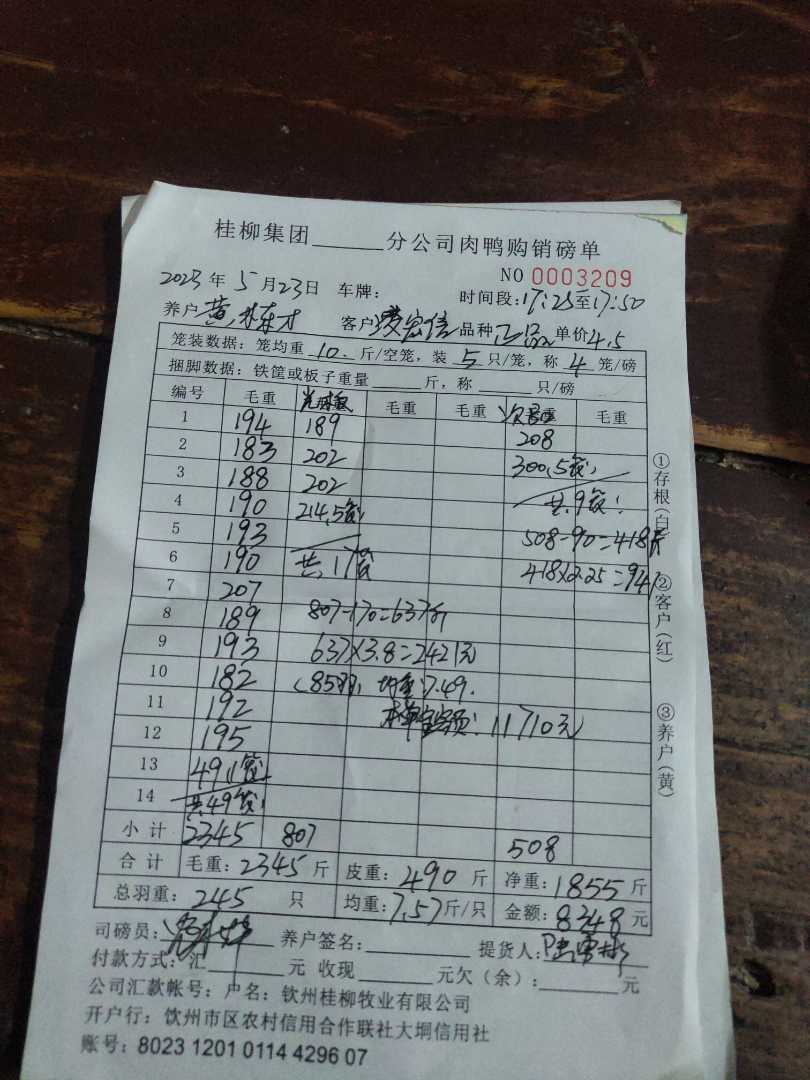 桂柳集团______分公司肉鸭购销磅单
NO 0003209
2023年5月23日 车牌: 时间段:17:25至17:50
养户 黄 才 客户 凌宏信 品种 正品 单价4.5
笼装数据: 笼均重 10. 斤/空笼, 装 5 只/笼, 称 4 笼/磅
捆脚数据: 铁筐或板子重量______斤, 称______只/磅
编号 毛重 毛重 毛重 毛重
1 194 189 208
2 183 202 300,5笼,
3 188 202 共9笼!
4 190 214,5笼, 508-90=418斤
5 193
6 190 共17笼 418×2.25=941
7 207
8 189 807-170=637斤
9 193 637×3.8=2421元
10 182 (85羽, 均重:7.49.
11 192 本单金额:11710元
12 195
13 49,1笼,
14 共49笼!
小计 2345 807 508
合计 毛重:2345斤 皮重:490斤 净重:1855斤
总羽重:245只 均重:7.57斤/只 金额:8348元
司磅员: 养户签名: 提货人:
付款方式:汇______元 收现______元欠(余):______元
公司汇款帐号: 户名: 钦州桂柳牧业有限公司
开户行: 钦州市区农村信用合作联社大垌信用社
账号: 8023 1201 0114 4296 07
①存根(白)
②客户(红)
③养户(黄)